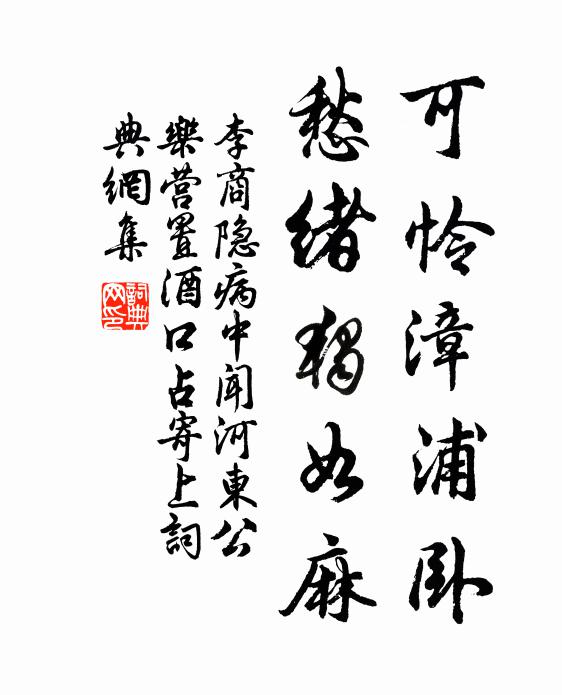 可怜漳浦卧
愁绪独如麻
李商隐病中闻河東公
樂营置酒口占寄上詞
典網集
詞典网印